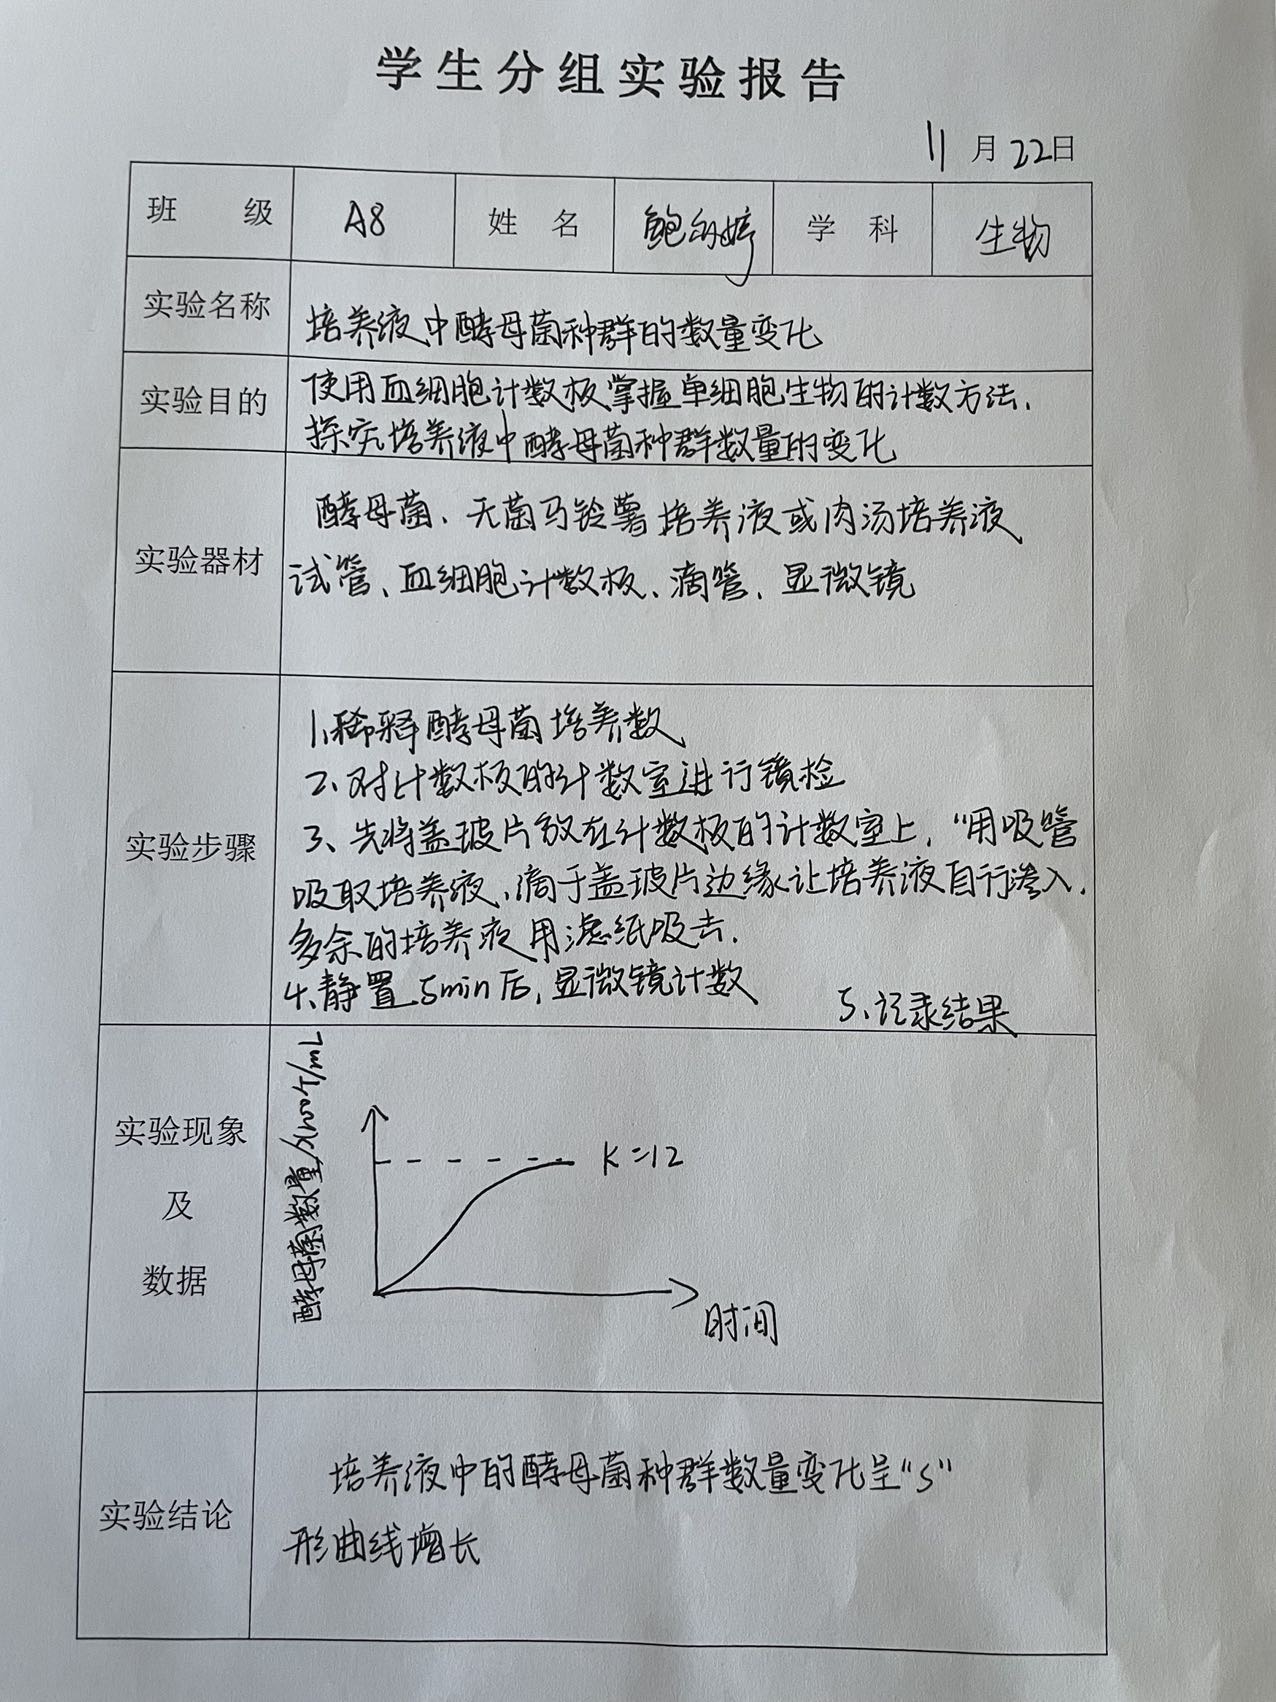 学生分组实验报告
11月22日
班 级 A8 姓 名 鲍 婷 学 科 生物
实验名称 培养液中酵母菌种群的数量变化
实验目的 使用血细胞计数板掌握单细胞生物的计数方法.
探究培养液中酵母菌种群数量的变化
实验器材
酵母菌、无菌马铃薯培养液或肉汤培养液
试管、血细胞计数板、滴管、显微镜
实验步骤
1.稀释酵母菌培养数
2、对计数板的计数室进行镜检
3、先将盖玻片放在计数板的计数室上，“用吸管
吸取培养液、滴于盖玻片边缘让培养液自行渗入.
多余的培养液用滤纸吸去.
4、静置5min后,显微镜计数 5、记录结果
实验现象
及
数据
酵母菌数量 个/mL
K=12
时间
实验结论
培养液中的酵母菌种群数量变化呈“S”
形曲线增长